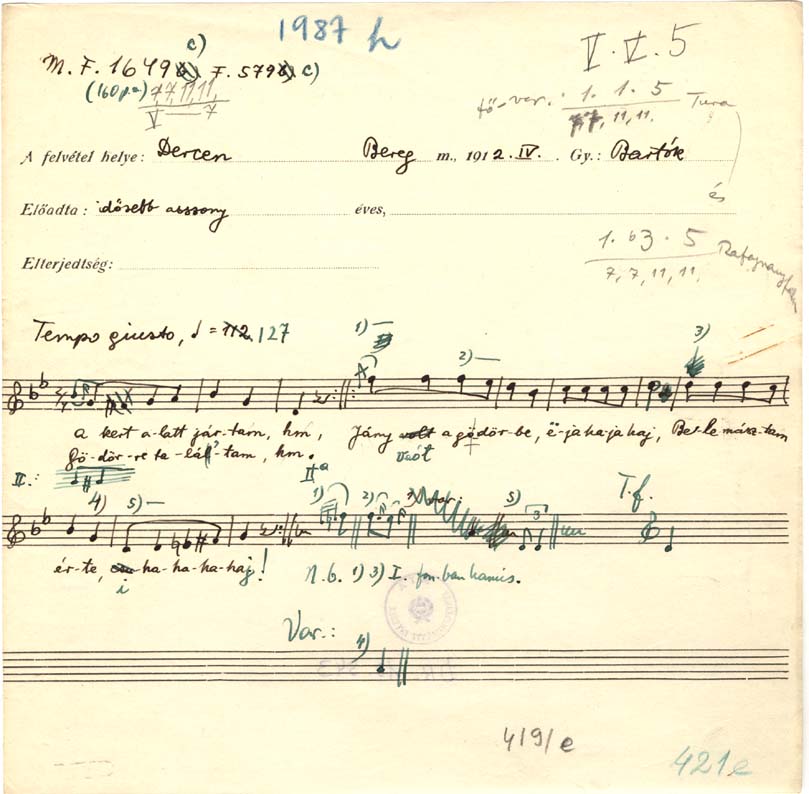 1987 h
V. V. 5
c)
M. F. 1649 b) F. 579 b) c)
(160 p.a) 7, 7, 11, 11,
V — 7
fő-var. : 1. 1. 5 Tura
7, 7, 11, 11.
A felvétel helye: Dercen Bereg m., 1912. IV. Gy.: Bartók
és
Előadta: idősebb asszony éves,
1. b3. 5
7, 7, 11, 11.
Elterjedtség:
Tempo giusto, ♩ = 112 127
1) 2) 3)
a kert a-latt jár-tam, hm, Jány volt a gödör-be, ë-jahajahaj, Bel-le mász-tam
Gö-dör-re ta-lál-tam, hm. vaót
II.: IIa
4) 5) 1) 2) 3) Var.: 5) 3 T.f.
ér-te, ha-ha-ha-haj!
i
N.b. 1) 3) I. fon-ban hamis.
Var.:
4)
419/e
421e